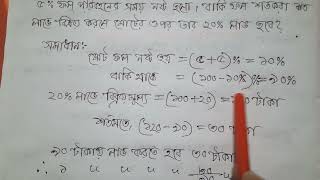 ৫% ফল পরিবহনের সময় নষ্ট হলো, বাকি ফল শতকরা কত
লাভে বিক্রয় করলে মোটের ওপর তার 20% লাভ হবে?
সমাধান:
মোট ফল নষ্ট হয় = (৫+৫)% = ১০%
বাকি থাকে = (১০০-১০)% = ৯০%
20% লাভে বিক্রয়মূল্য = (১০০+২০) = টাকা
শর্তমতে, (১২০-৯০) = ৩০ টাকা
৯০ টাকায় লাভ করতে হবে ৩০ টাকা
∴ ১ " " " " ৩০ "